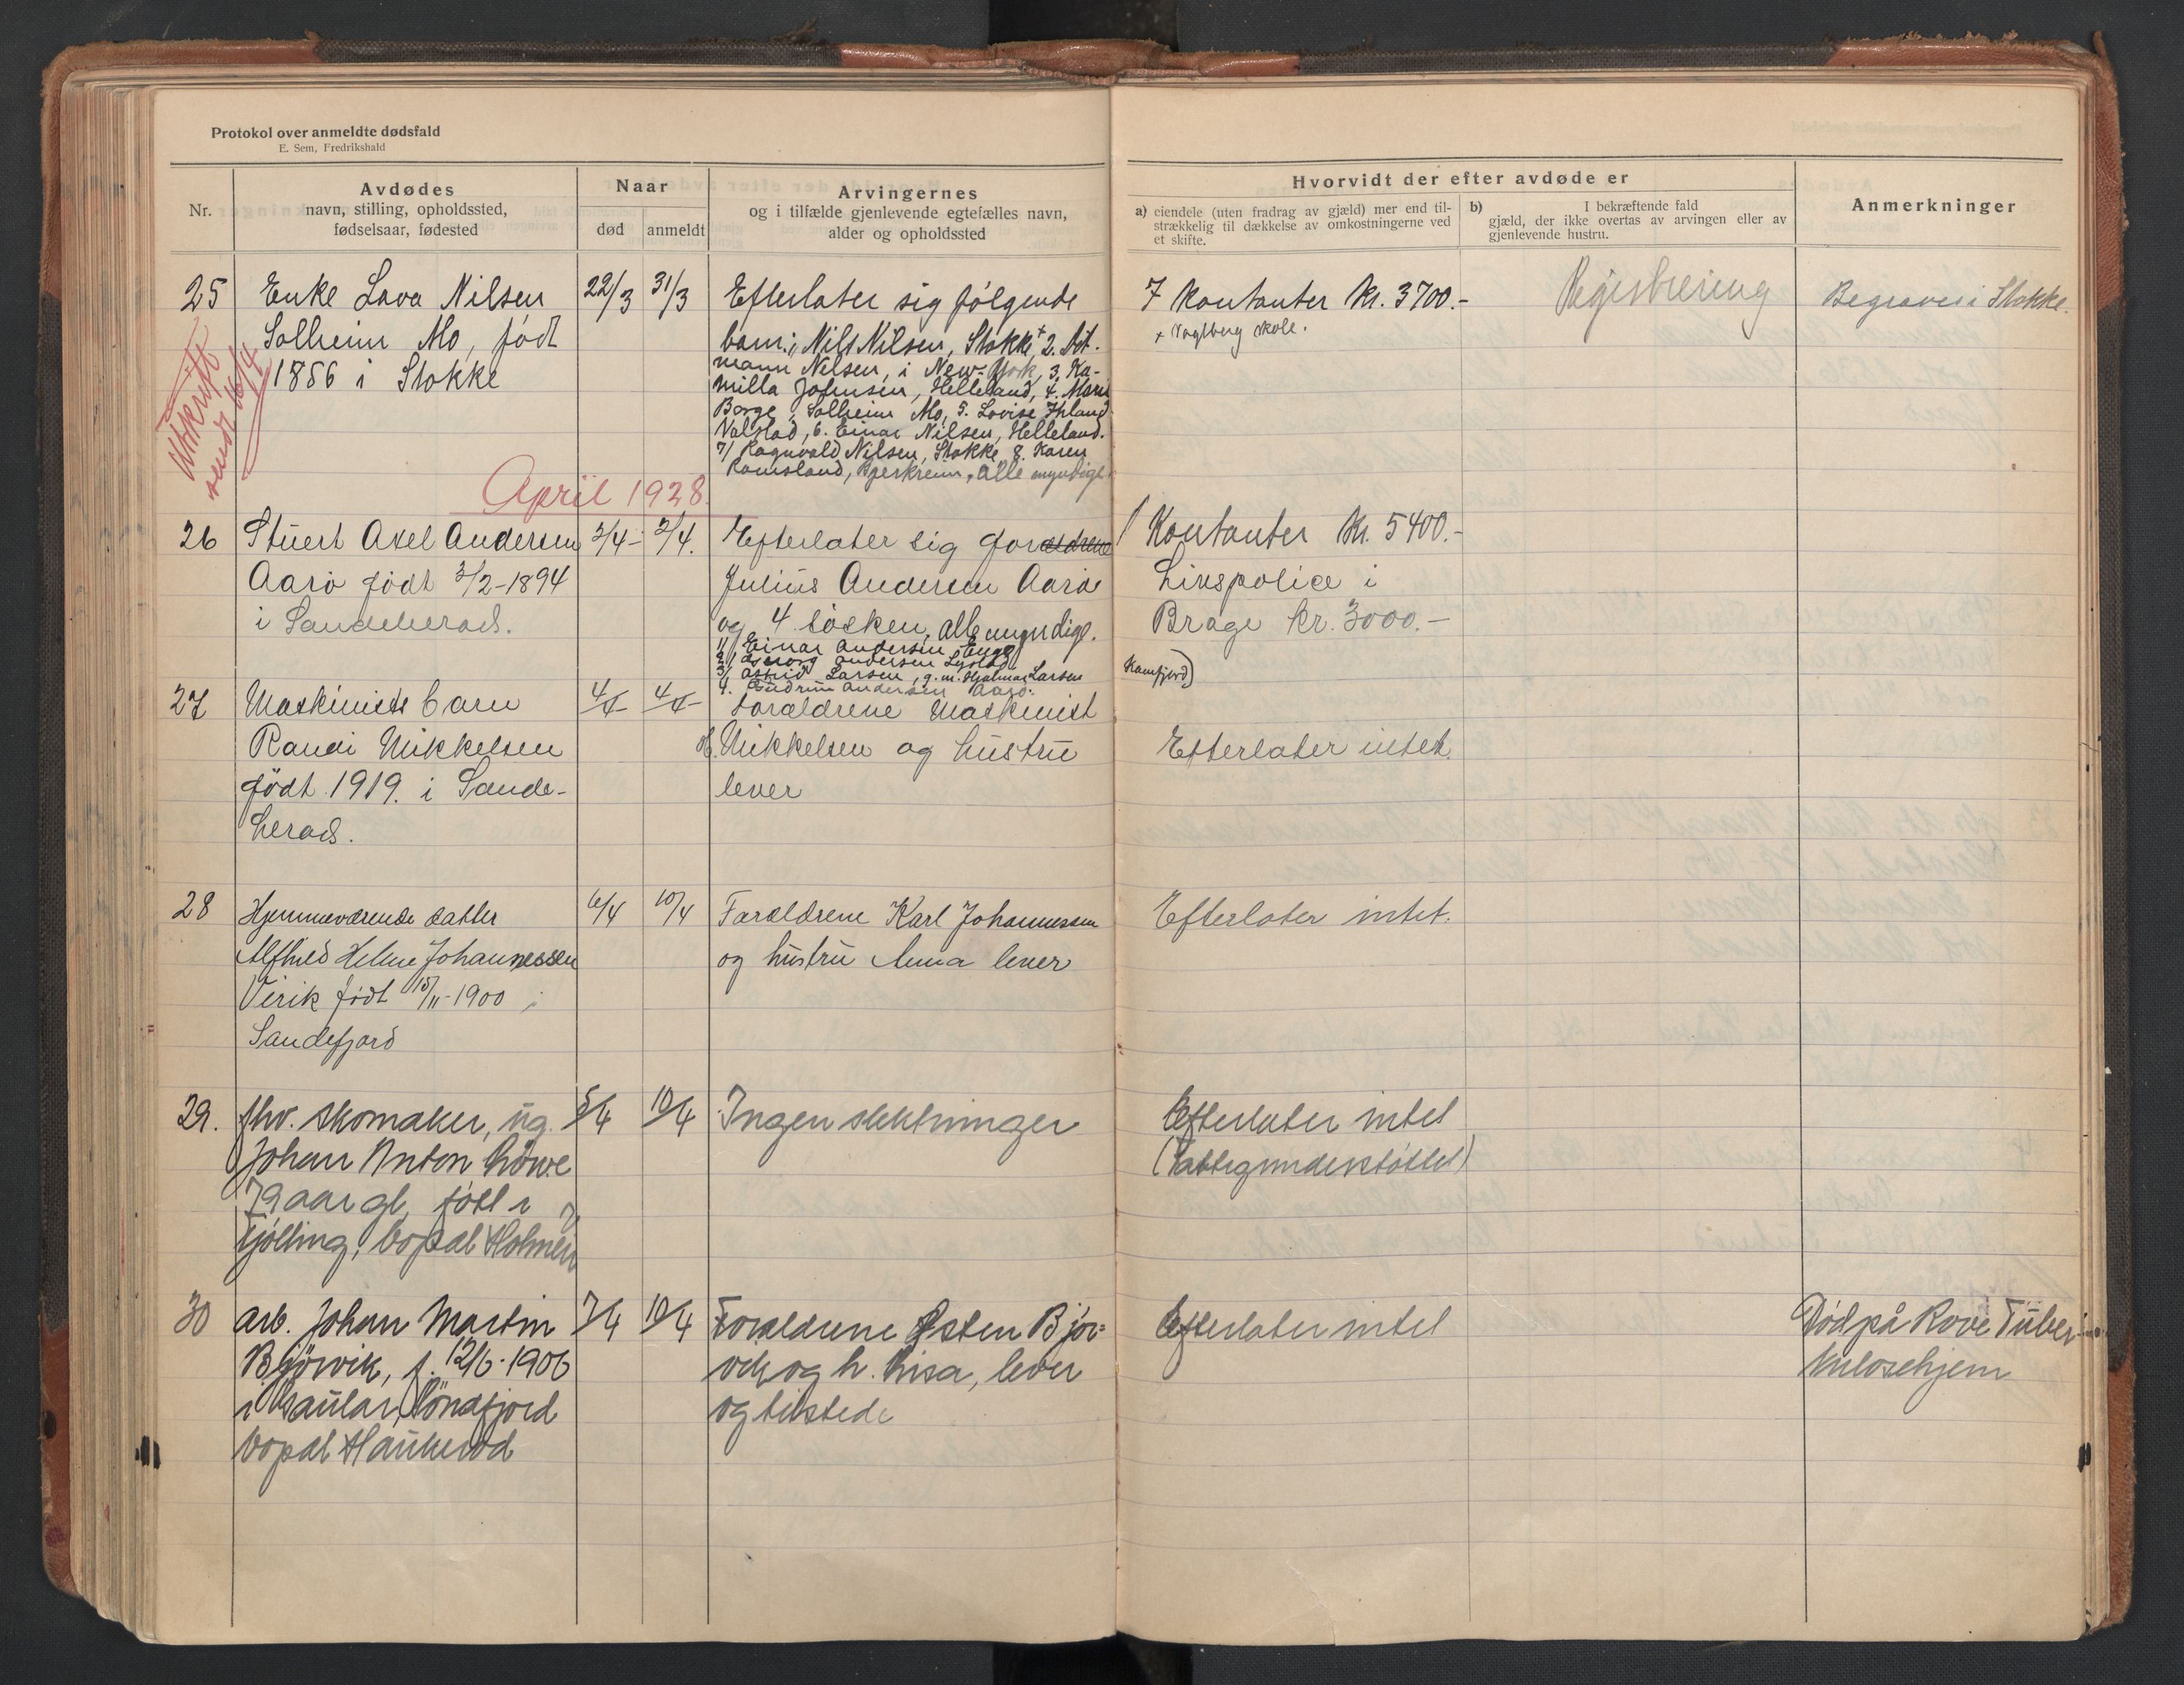 Protokol over anmeldte dødsfald
E. Sem, Fredrikshald
Nr.
Avdødes
navn, stilling, opholdssted,
fødselsaar, fødested
Naar
død
anmeldt
Arvingernes
og i tilfælde gjenlevende egtefælles navn,
alder og opholdssted
Hvorvidt der efter avdøde er
a) eiendele (uten fradrag av gjæld) mer end til-
strækkelig til dækkelse av omkostningerne ved
et skifte.
b) I bekræftende fald
gjæld, der ikke overtas av arvingen eller av
gjenlevende hustru.
Anmerkninger
25
Utskrift
sendt 16/4
Enke Lava Nilsen
Solheim Mo, født
1856 i Stokke
22/3
31/3
Efterlater sig følgende
barn: 1, Nils Nilsen, Stokke + 2. Art-
mann Nilsen, i New-York, 3. Ka-
milla Johnsen, Helleland, 4. Marie
Borge, Solheim Mo, 5. Lovise Ihland
Valstad, 6. Einar Nilsen, Helleland.
7/ Ragnvald Nilsen, Stokke 8. Karen
Ramsland, Bjerkreim, alle myndige.
7 Kontanter Kr. 3700.-
+ Vagtberg skole.
Registrering
Begraves i Stokke.
April 1928.
26
Stuert Axel Andersen
Aarø født 3/2-1894
i Sandeherad.
2/4-
2/4.
Efterlater sig forældrene
Julius Andersen Aarø
og 4 søsken, alle myndige.
1/ Einar Andersen Enge
2/ Andersen Lystad
3/ Astrid Larsen, g. m. Hjalmar Larsen
4. Gudrun Andersen Aarø.
Kontanter Kr. 5400.-
Livspolice i
Brage kr. 3000.-
Kamfjord)
27
Maskinists barn
Randi Mikkelsen
født 1919. i Sande-
herad.
4/4-
4/4-
Forældrene Maskinist
H. Mikkelsen og hustru
lever
Efterlater intet.
28
Hjemmeværende datter
Alfhild Helene Johannessen
Virik født 15/11-1900 i
Sandefjord
6/4
10/4
Forældrene Karl Johannessen
og hustru Anna lever
Efterlater intet.
29.
fhv. skomaker, ug.
Johan Anton Löwe
79 aar gl, født i
Tjølling, bopæl Holmen
5/4
10/4
Ingen slektninger
Efterlater intet
(Fattigunderstøttet)
30
arb. Johan Martin
Bjørvik, f. 12/6-1906
i Gaular, Søndfjord
bopæl Haukerød
7/4
10/4
Forældrene Østen Bjør-
vik og h. Lisa, lever
og tilstede
Efterlater intet
Død på Rove Tuber-
kulosehjem